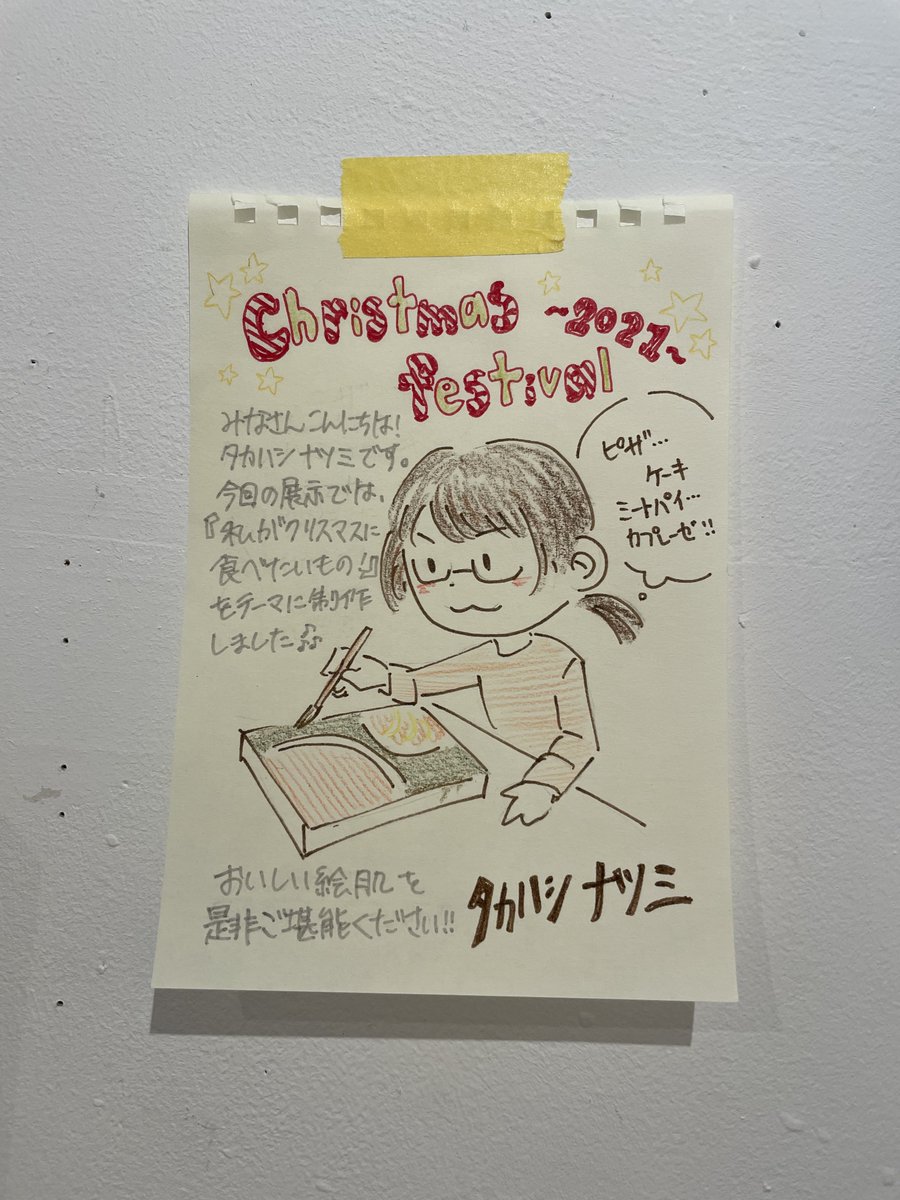 Christmas ~2021~
festival
みなさんこんにちは!
タカハシナツミです。
今回の展示では、
『私がクリスマスに
食べたいもの!』
をテーマに制作
しました♪♪
ピザ…
ケーキ
ミートパイ…
カプレーゼ!!
おいしい絵肌を
是非ご堪能ください!!
タカハシ ナツミ